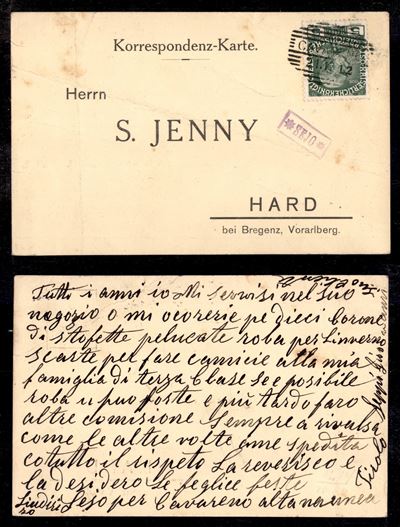 Korrespondenz-Karte.
Herrn
S. JENNY
* SEJO *
HARD
bei Bregenz, Vorarlberg.
Tutti i anni io Mi servisi nel suo
negozio o mi ocorerie pe dieci Corone
di stofette pelucate roba per linverno
scarte per fare camicie alla mia
famiglia di terza Clase se e posibile
roba u puo foste e più tardo faro
altre comisione Sempre a rivalsa
come le altre volte ame spedita
cotutto il rispeto La reverisco e
la desidero le feglice feste
Sejo per Cavareno alta
Tirolo